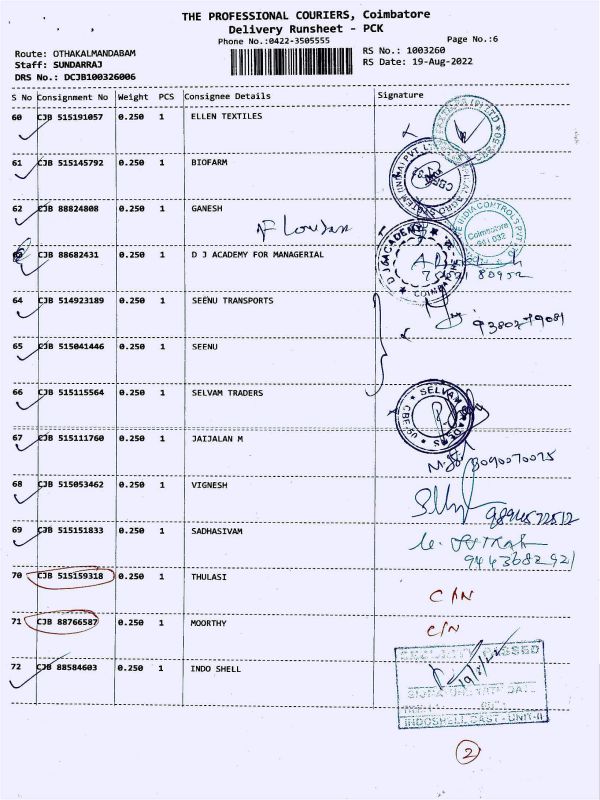 THE PROFESSIONAL COURIERS, Coimbatore
Delivery Runsheet - PCK
Phone No.:0422-3505555
Page No.:6
Route: OTHAKALMANDABAM
RS No.: 1003260
Staff: SUNDARRAJ
RS Date: 19-Aug-2022
DRS No.: DCJB100326006
S No Consignment No Weight PCS Consignee Details Signature
60 CJB 515191057 0.250 1 ELLEN TEXTILES
61 CJB 515145792 0.250 1 BIOFARM
62 CJB 88824808 0.250 1 GANESH
63 CJB 88682431 0.250 1 D J ACADEMY FOR MANAGERIAL
D J ACADEMY
COIMBATORE
INDIA CONTROLS PVT
Coimbatore
641 032
80952
64 CJB 514923189 0.250 1 SEENU TRANSPORTS
65 CJB 515041446 0.250 1 SEENU
66 CJB 515115564 0.250 1 SELVAM TRADERS
SELVAM TRADERS
67 CJB 515111760 0.250 1 JAIJALAN M
68 CJB 515053462 0.250 1 VIGNESH
69 CJB 515151833 0.250 1 SADHASIVAM
70 CJB 515159318 0.250 1 THULASI
C/N
71 CJB 88766587 0.250 1 MOORTHY
C/N
72 CJB 88584603 0.250 1 INDO SHELL
SECURITY PASSED
SIGNATURE WITH DATE
INDOSHELL CAST - UNIT-II
2